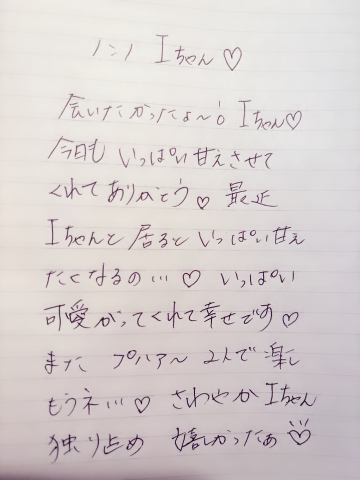 ハニハ Iちゃん♡
会いたかったよ〜! Iちゃん♡
今日も いっぱい甘えさせて
くれてありがとう♡ 最近
Iちゃんと居ると いっぱい甘え
たくなるの…♡ いっぱい
可愛がってくれて幸せです♡
また プハァ〜 2人で楽し
もうネ…♡ さわやかIちゃん
独り占め 嬉しかったぁ